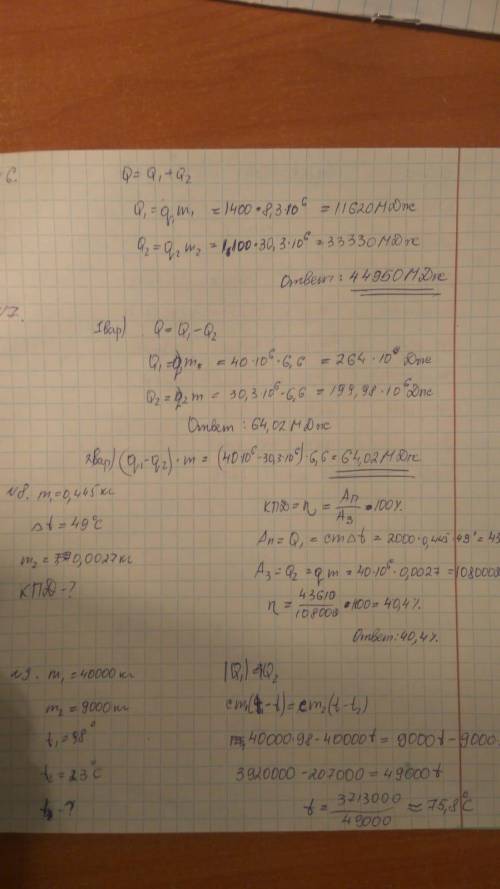 6.
Q = Q₁ + Q₂
Q₁ = q₁m₁ = 1400 • 8,3•10⁶ = 11620 МДж
Q₂ = q₂ m₂ = 1100 • 30,3•10⁶ = 33330 МДж
Ответ: 44950 МДж
7.
1вар) Q = Q₁ - Q₂
Q₁ = q₁m = 40•10⁶•6,6 = 264•10⁶ Дж
Q₂ = q₂m = 30,3•10⁶•6,6 = 199,98•10⁶ Дж
Ответ: 64,02 МДж
2вар) (q₁-q₂)•m = (40•10⁶-30,3•10⁶)•6,6 = 64,02 МДж
№8. m₁ = 0,445 кг
Δt = 49°C
m₂ = 0,0027 кг
КПД - ?
КПД = η = Aп/Aз • 100%
Aп = Q₁ = cmΔt = 2000•0,445•49° = 43
Aз = Q₂ = qm = 40•10⁶•0,0027 = 108000
η = 43610/108000 • 100 = 40,4%
Ответ: 40,4%
№9. m₁ = 40000 кг
m₂ = 9000 кг
t₁ = 98°
t₂ = 23°C
t - ?
|Q₁| = Q₂
cm₁(t₁-t) = cm₂(t-t₂)
40000•98 - 40000t = 9000t - 9000
3920000 - 207000 = 49000t
t = 3713000/49000 ≈ 75,8°C